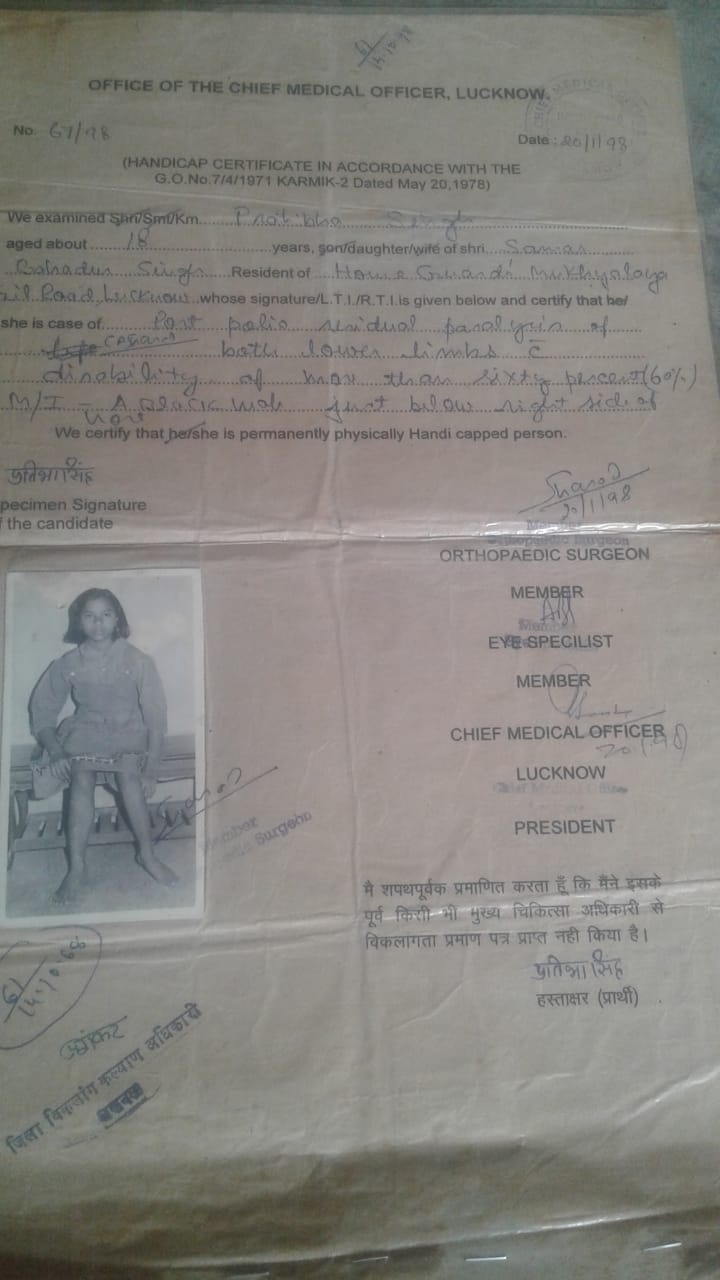 61/14.10.98
OFFICE OF THE CHIEF MEDICAL OFFICER, LUCKNOW.
No. 67/98
Date : 20/1/98
(HANDICAP CERTIFICATE IN ACCORDANCE WITH THE
G.O.No.7/4/1971 KARMIK-2 Dated May 20,1978)
We examined Shri/Smt/Km. Pratibha Singh
aged about 18 years, son/daughter/wife of shri. Samar
Bahadur Singh Resident of Home Guards Mukhyalaya
Jail Road, Lucknow whose signature/L.T.I./R.T.I.is given below and certify that he/
she is case of Post polio residual paralysis of
both lower limbs c̄
disability of more than sixty percent (60%)
M/I - A black mole just below right side of
We certify that he/she is permanently physically Handi capped person.
प्रतिभा सिंह
pecimen Signature
f the candidate
20/1/98
Member
Orthopaedic Surgeon
ORTHOPAEDIC SURGEON
MEMBER
Member
EYE SPECILIST
MEMBER
CHIEF MEDICAL OFFICER
LUCKNOW
Chief Medical Officer
PRESIDENT
Member
Surgeon
मै शपथपूर्वक प्रमाणित करता हूँ कि मैंने इसके
पूर्व किसी भी मुख्य चिकित्सा अधिकारी से
विकलांगता प्रमाण पत्र प्राप्त नही किया है।
प्रतिभा सिंह
हस्ताक्षर (प्रार्थी)
61/14.10.98
जिला विकलांग कल्याण अधिकारी
लखनऊ